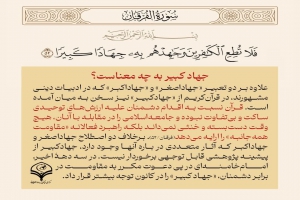 سُورَةُ الفُرقَان
بِسْمِ اللَّهِ الرَّحْمَنِ الرَّحِيمِ
فَلَا تُطِعِ الْكَافِرِينَ وَجَاهِدْهُم بِهِ جِهَادًا كَبِيرًا ﴿٥٢﴾
جهاد کبیر به چه معناست؟
علاوه بر دو تعبیر «جهاد اصغر» و «جهاد اکبر» که در ادبیات دینی
مشهورند، در قرآن کریم از «جهاد کبیر» نیز سخن به میان آمده
است. قرآن نسبت به اقدام دشمنان علیه ارزش‌های توحیدی
ساکت و بی‌تفاوت نبوده و جامعه‌اسلامی را در مقابله با آنان، هیچ
وقت دست بسته و خنثی نمی‌داند بلکه راهبرد فعالانه «مقاومت
همه جانبه» را ارایه می‌دهد. برخلاف دو اصطلاح جهاد اصغر و
جهاد اکبر که آثار متعددی در باره آنها وجود دارد، جهاد کبیر از
پیشینه پژوهشی قابل توجهی برخوردار نیست. در سه دهه اخیر
امام خامنه‌ای در پی دعوت مکرر به مقاومت در
برابر دشمنان، «جهاد کبیر» را در کانون توجه بیشتر قرار داد.